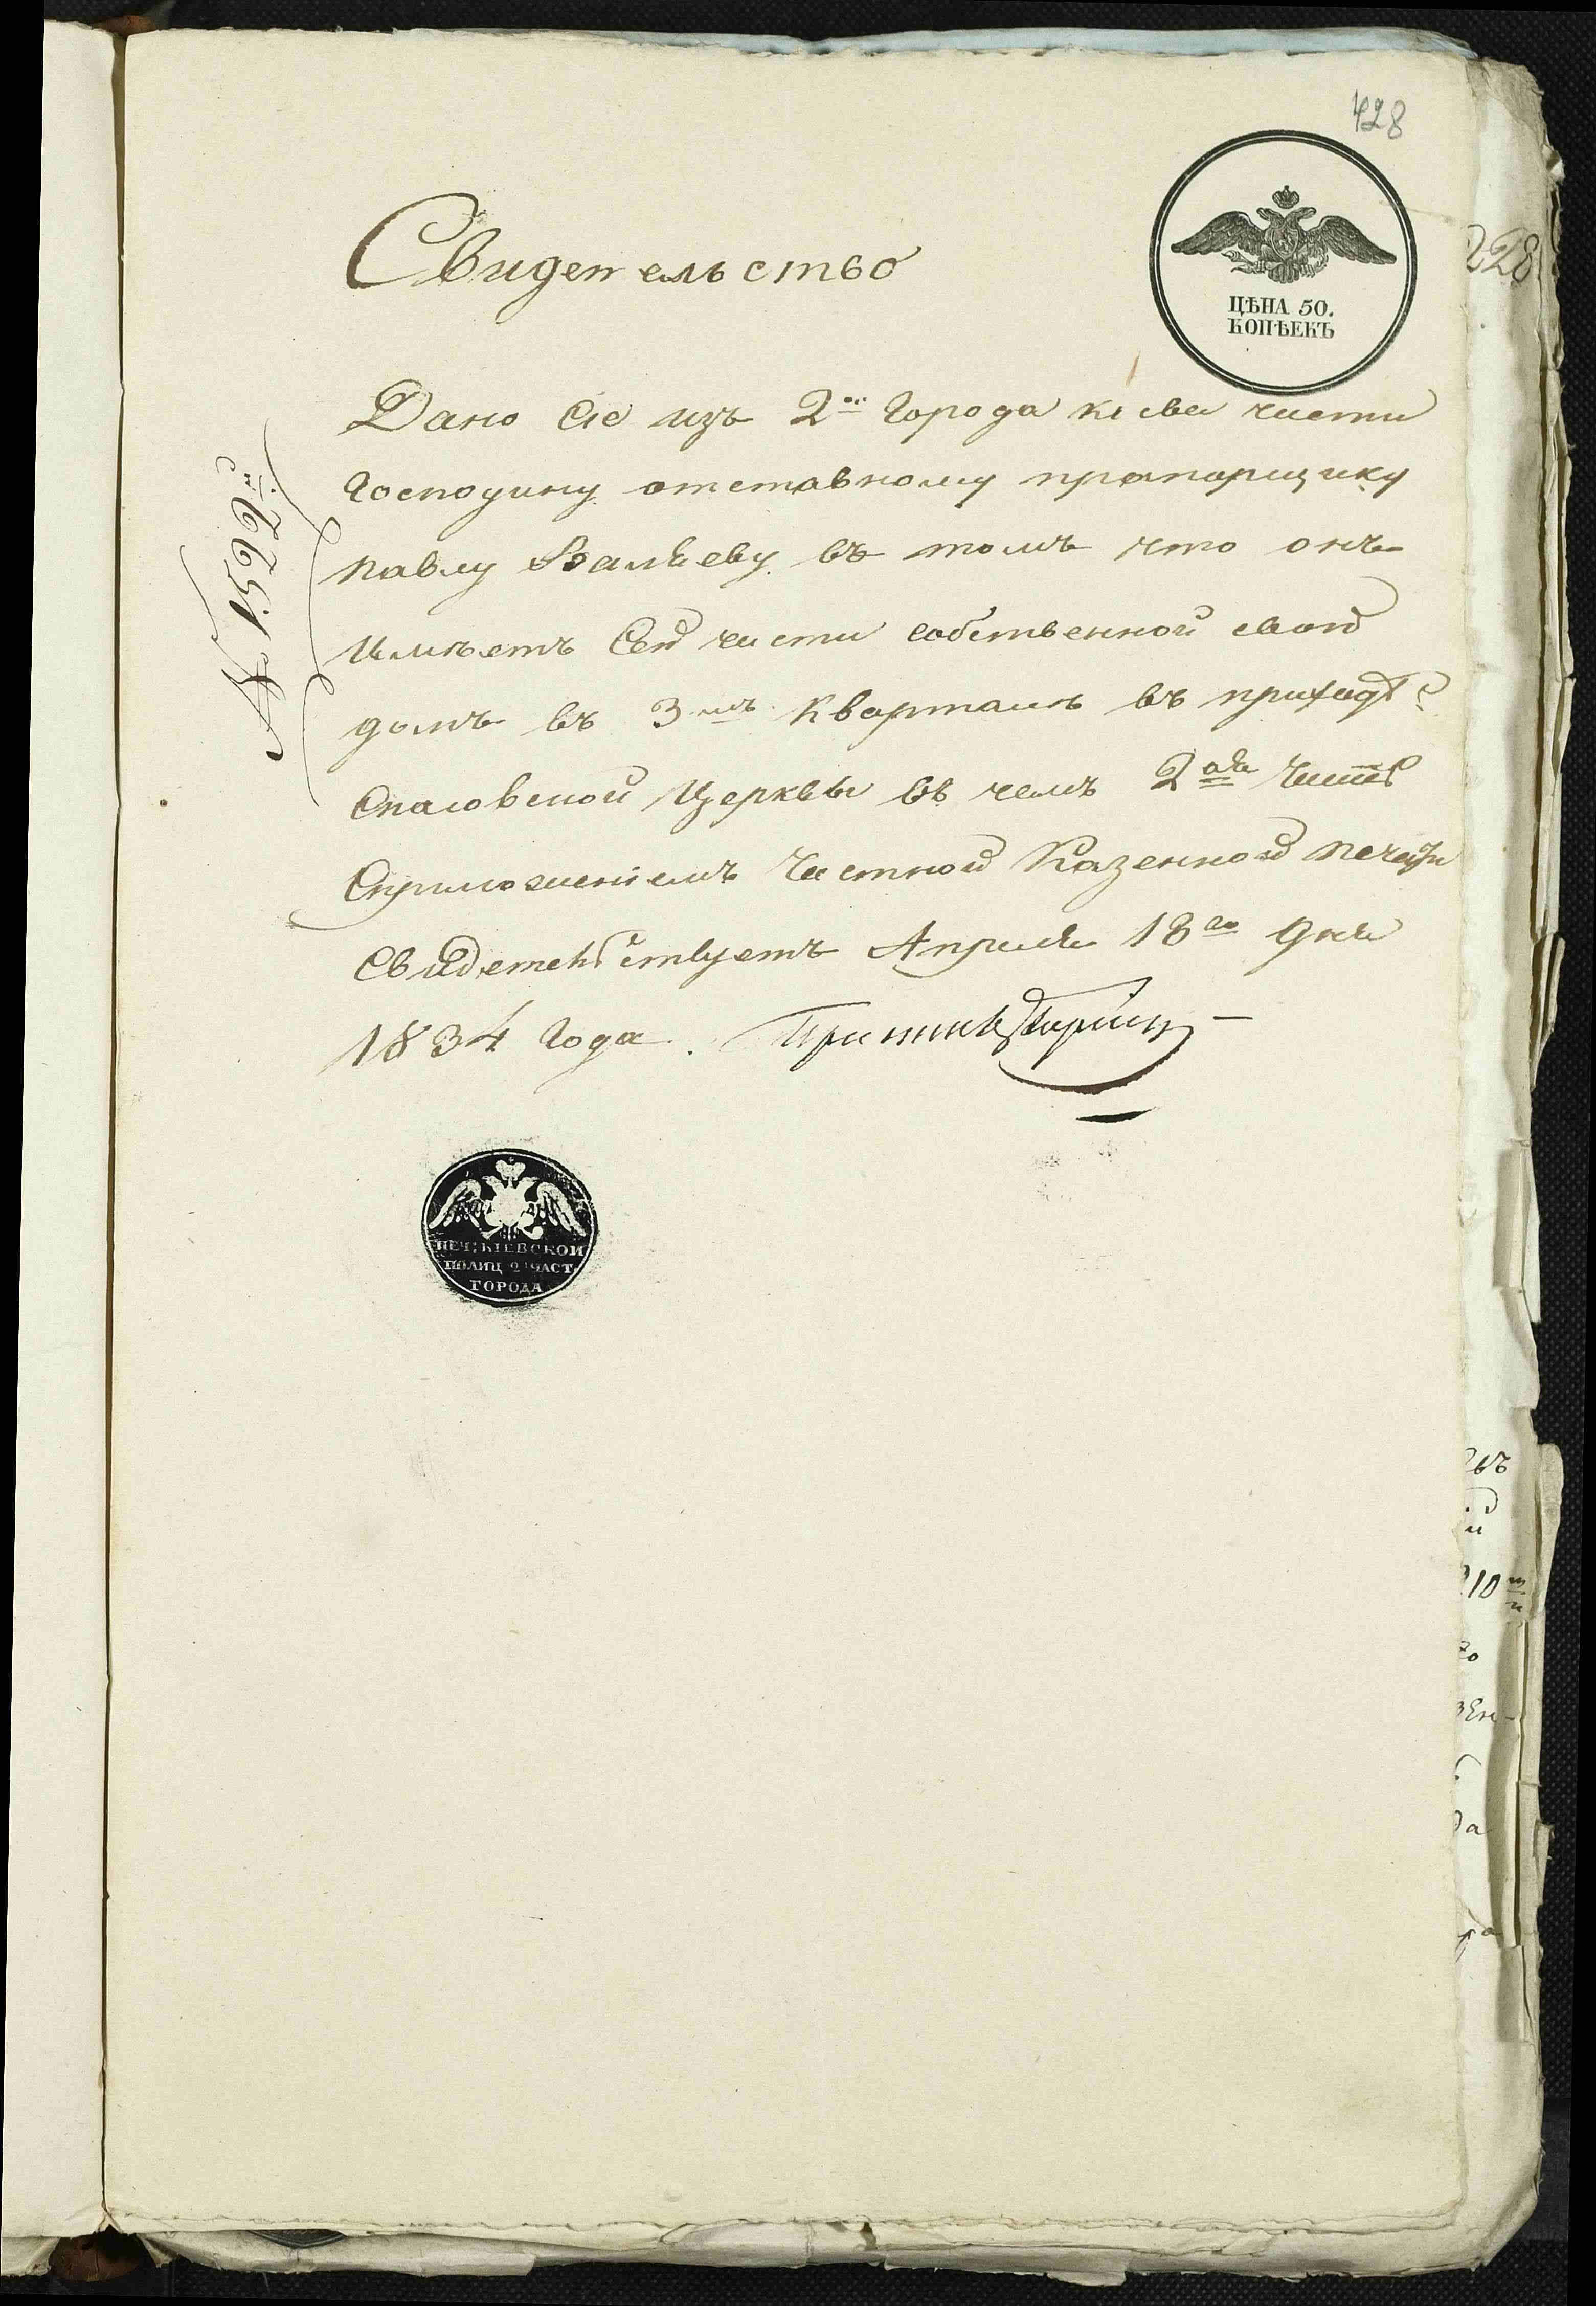 428
ЦѢНА 50.
КОПѢЕКЪ
Свидетельство
Дано Сіе изъ 2ой Города Кіева части
Господину отставному прапорщику
Павлу въ томъ что онъ
Имѣетъ Сей части собственной свой
домъ въ 3мъ Кварталѣ въ приходѣ
Спасовской Церквы въ чемъ 2ая Часть
Сприложеніемъ Частной Казенной печати
Свидетельствуетъ Апреля 18го дня
1834 Года.
№ 1522
ПЕЧ: КІЕВСКОЙ
ПОЛИЦ 2 ЧАСТ
ГОРОДА
228